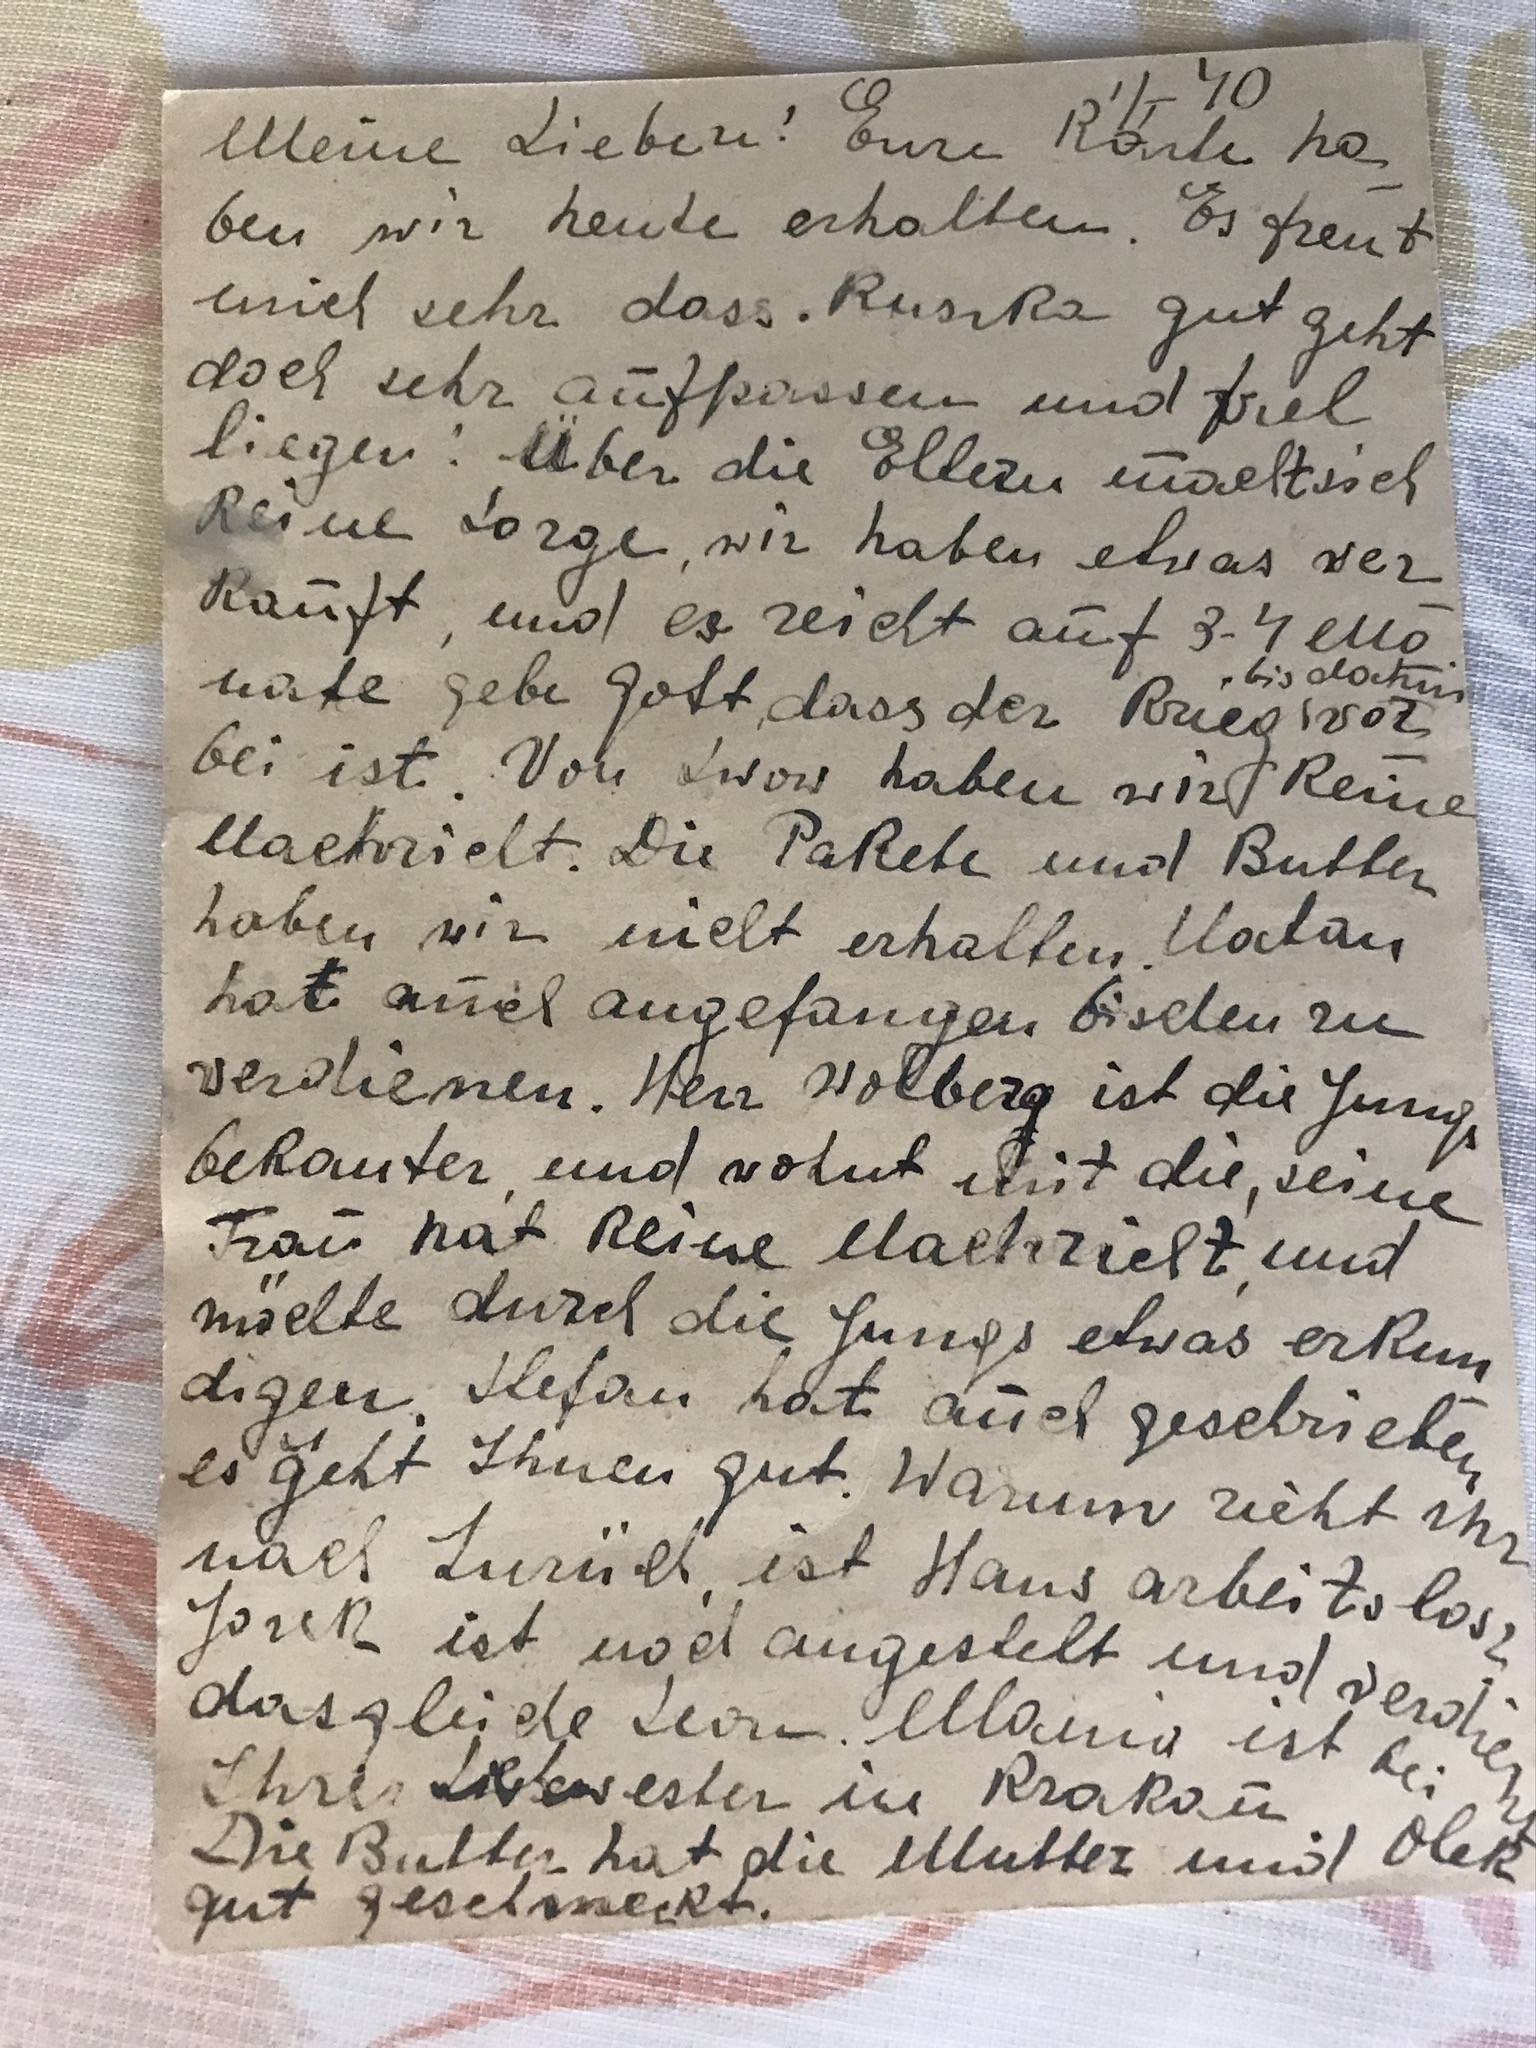 1/I 40
Meine Lieben! Eure Karte ha-
ben wir heute erhalten. Es freut
mich sehr dass. Ruszka gut geht
doch sehr aufpassen und fiel
liegen! Über die Eltern macht sich
keine Sorge, wir haben etwas ver
kauft, und es reicht auf 3-4 Mo
bis dahin
nate gebe Gott, dass der Krieg vor
bei ist. Von Lwow haben wir keine
Nachricht. Die Pakete und Butter
haben wir nicht erhalten. Natan
hat auch angefangen bischen zu
verdienen. Herr Wolberg ist die Jungs
bekanter, und wohnt mit die, seine
Frau hat keine Nachricht, und
möchte durch die Jungs etwas erkun
digen. Stefan hat auch geschrieben
es geht Ihnen gut. Warum zieht Ihr
nach Zurüch, ist Hans arbeitslos?
Jozek ist noch angestelt und verdient
dasgleiche Leon. Mania ist bei
Ihre in Krakau
Die Butter hat die Mutter und Olek
gut geschmeckt.